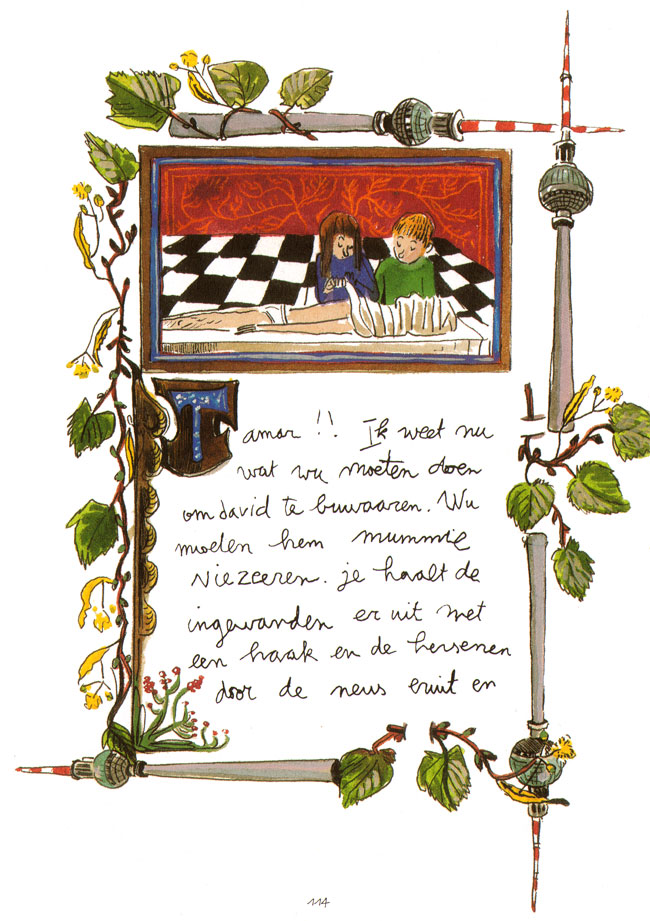 Tamar!! Ik weet nu
wat wij moeten doen
om david te buwaaren. Wij
moeten hem mummie
niezeeren. je haalt de
ingewanden er uit met
een haak en de hersenen
door de neus eruit en
114